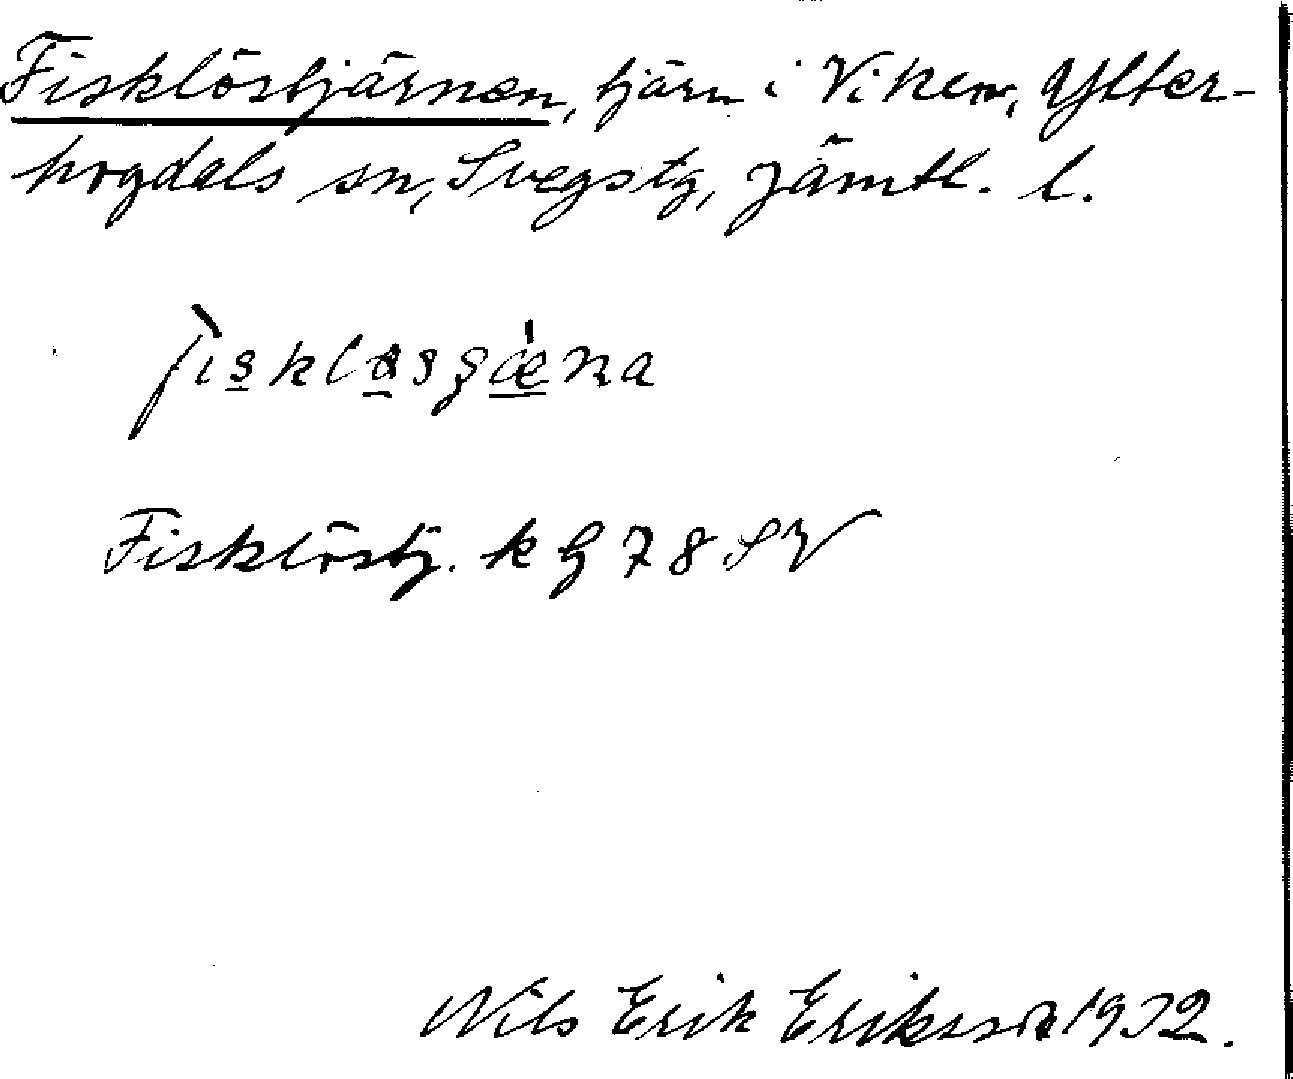 Fisklöstjärnen, tjärn i Viken, Ytter-
hogdals sn, Svegs tg, Jämtl. l.
Fisklöstj. k G 78 SV
Nils Erik Eriksson 1932.